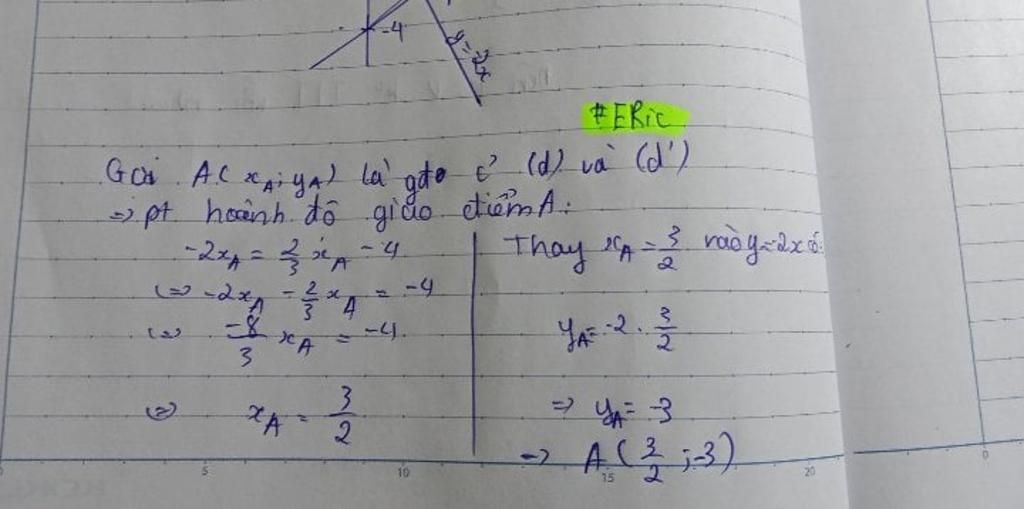 -4
y=-2x
#ERic
Gọi A(x_A; y_A) là gđ của (d) và (d')
=> pt hoành độ giao điểm A:
-2x_A = 2/3 x_A - 4
<=> -2x_A - 2/3 x_A = -4
<=> -8/3 x_A = -4
<=> x_A = 3/2
Thay x_A = 3/2 vào y=-2x có:
y_A = -2 . 3/2
=> y_A = -3
-> A(3/2; -3)
5 10 15 20
0